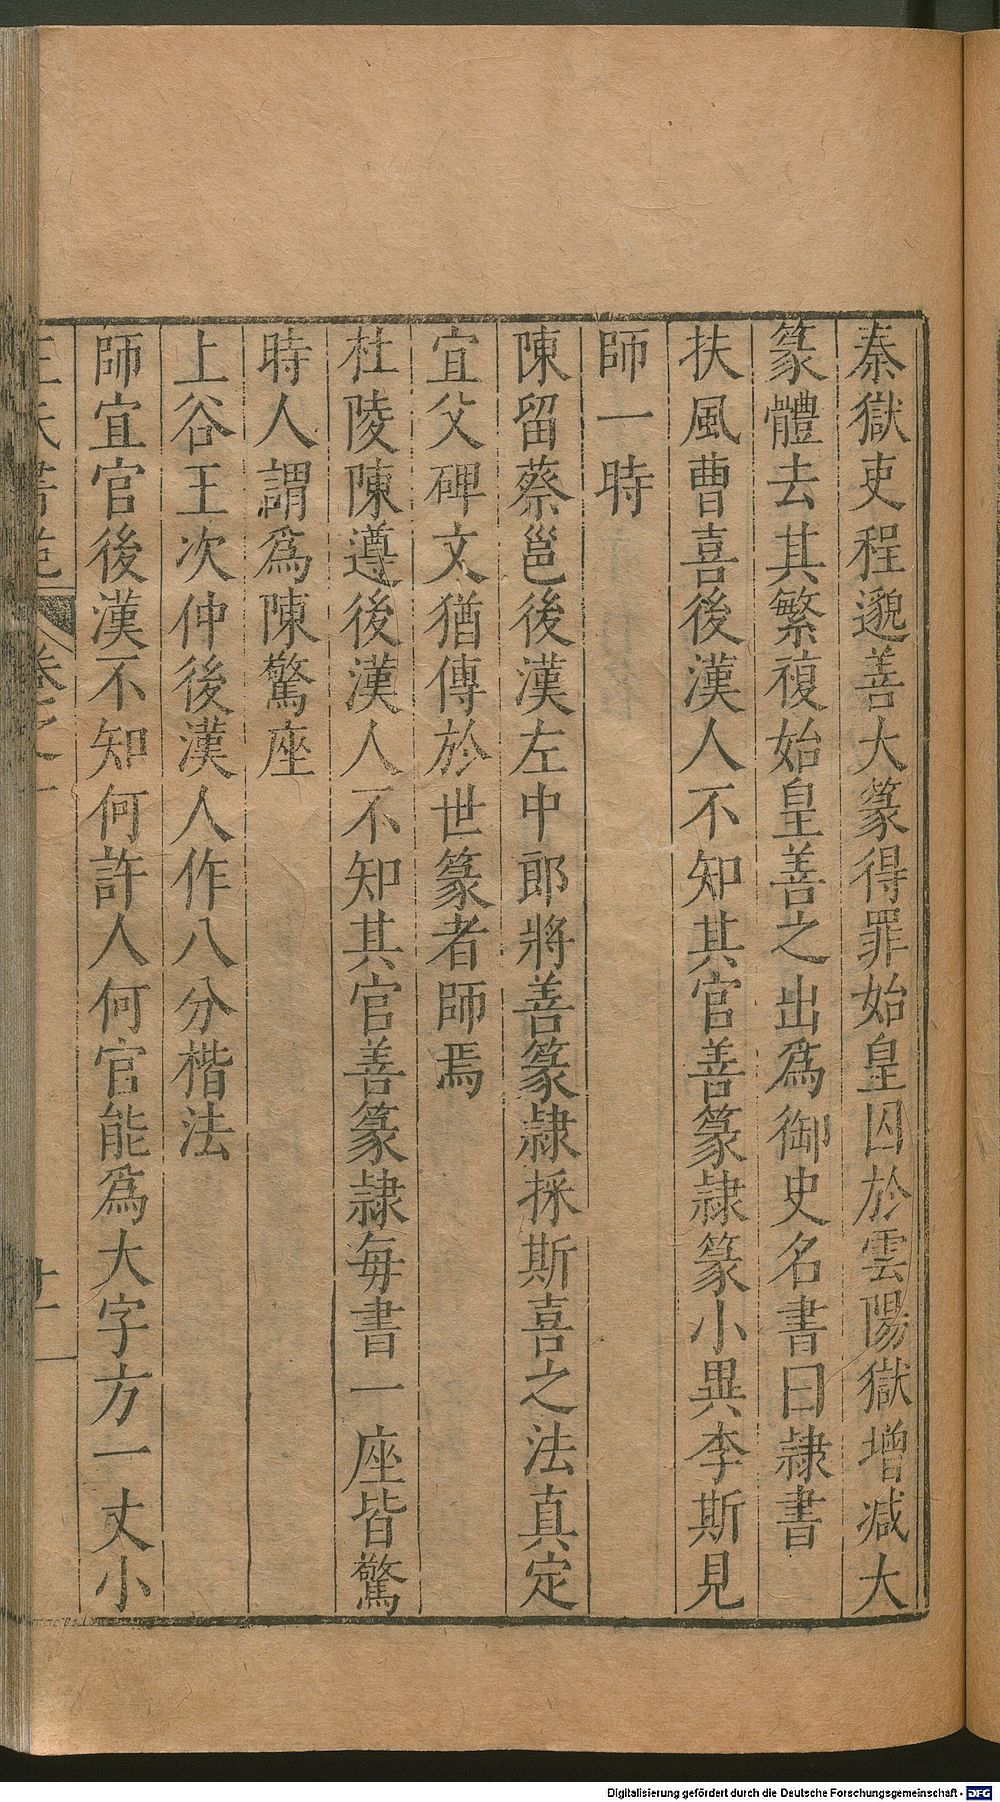 秦獄吏程邈善大篆得罪始皇囚於雲陽獄增减大
篆體去其繁複始皇善之出爲御史名書曰隷書
扶風曹喜後漢人不知其官善篆隷篆小異李斯見
師一時
陳留蔡邕後漢左中郎將善篆隷採斯喜之法真定
宜父碑文猶傳於世篆者師焉
杜陵陳遵後漢人不知其官善篆隷每書一座皆驚
時人謂爲陳驚座
上谷王次仲後漢人作八分楷法
師宜官後漢不知何許人何官能爲大字方一丈小
王氏書苑 卷之一
Digitalisierung gefördert durch die Deutsche Forschungsgemeinschaft - DFG